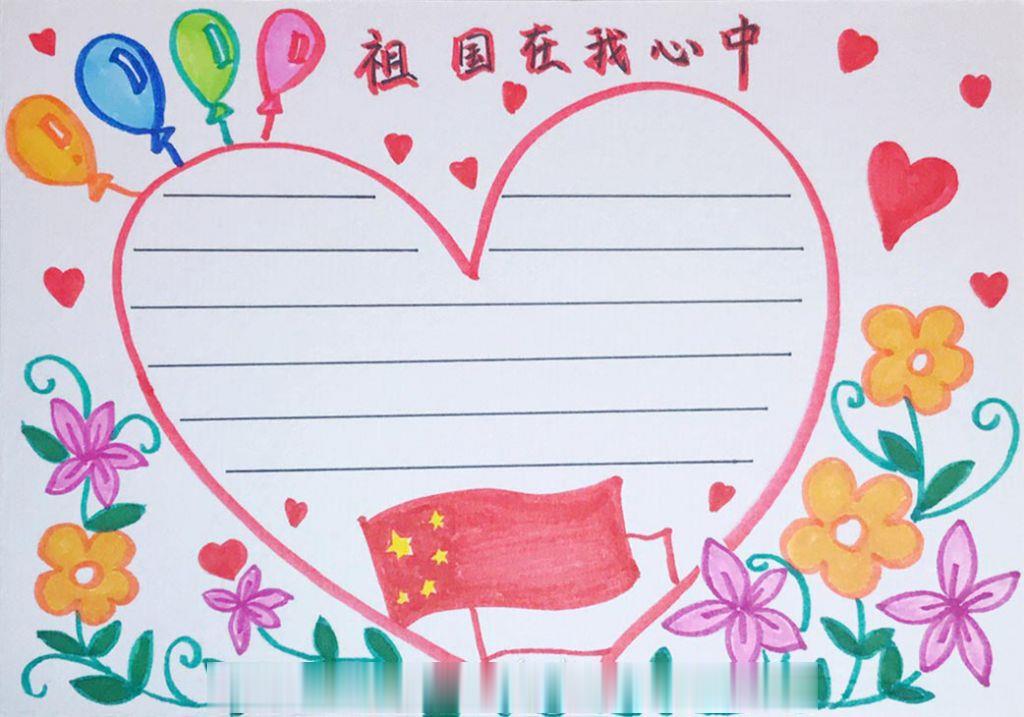 祖国在我心中